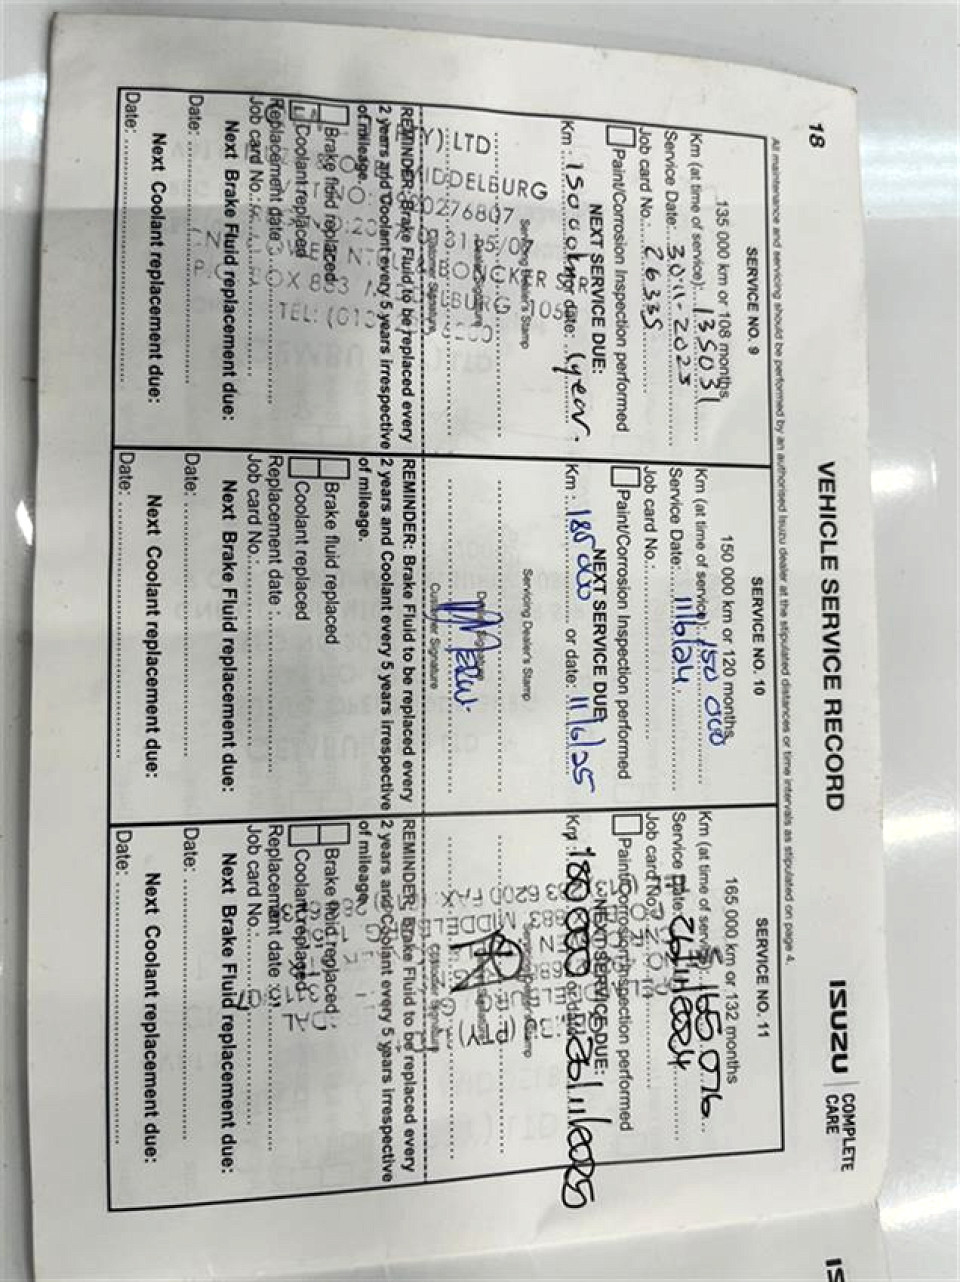 18
VEHICLE SERVICE RECORD
ISUZU
COMPLETE
CARE
All maintenance and servicing should be performed by an authorised Isuzu dealer at the stipulated distances or time intervals as stipulated on page 4.
SERVICE NO. 9
135 000 km or 108 months
Km (at time of service): 135031
Service Date: 30-11-2023
Job card No.: 26335
Paint/Corrosion Inspection performed
NEXT SERVICE DUE:
Km : 150000km or date: 1 year.
Servicing Dealer's Stamp
(Y) LTD
MIDDELBURG
Dealer Signature
Customer Signature
REMINDER: Brake Fluid to be replaced every
2 years and Coolant every 5 years irrespective
of mileage.
Brake fluid replaced
Coolant replaced
Replacement date
Job card No.:
Next Brake Fluid replacement due:
Date:
Next Coolant replacement due:
Date:
SERVICE NO. 10
150 000 km or 120 months
Km (at time of service): 150 000
Service Date: 11/6/24
Job card No.:
Paint/Corrosion Inspection performed
NEXT SERVICE DUE
Km : 185 000 or date: 11/6/25
Servicing Dealer's Stamp
Dealer Signature
Customer Signature
REMINDER: Brake Fluid to be replaced every
2 years and Coolant every 5 years irrespective
of mileage.
Brake fluid replaced
Coolant replaced
Replacement date :
Job card No.:
Next Brake Fluid replacement due:
Date:
Next Coolant replacement due:
Date:
SERVICE NO. 11
165 000 km or 132 months
Km (at time of service): 165 076
Service Date: 26/11/2024
Job card No.:
Paint/Corrosion Inspection performed
NEXT SERVICE DUE:
Km : 180 000 or date: 26/11/2025
Servicing Dealer's Stamp
Customer Signature
REMINDER: Brake Fluid to be replaced every
2 years and Coolant every 5 years irrespective
of mileage.
Brake fluid replaced
Coolant replaced
Replacement date
Job card No.:
Next Brake Fluid replacement due:
Date:
Next Coolant replacement due:
Date: